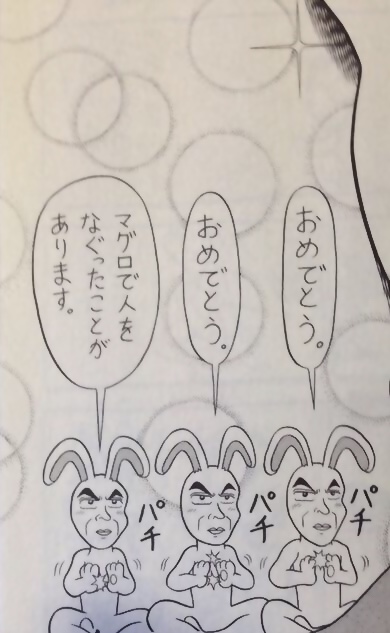 おめでとう。
おめでとう。
マグロで人を
なぐったことが
あります。
パチ
パチ
パチ